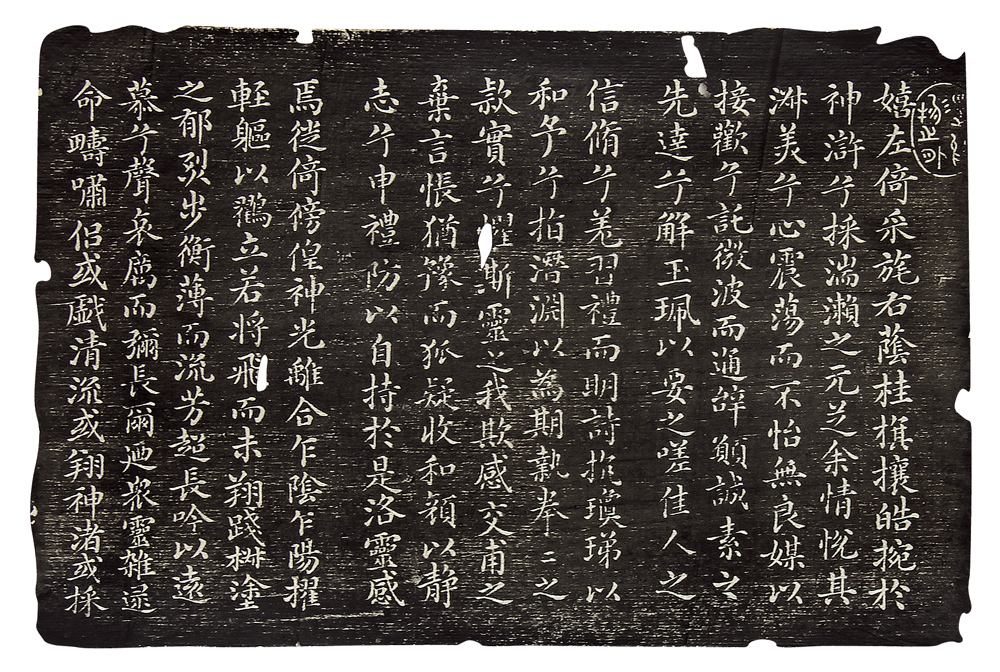 嬉左倚采旄右蔭桂旗攘皓捥於
神滸兮採湍瀨之玄芝余情悅其
淋美兮心震蕩而不怡無良媒以
接歡兮託微波而通辝願誠素之
先達兮解玉珮以要之嗟佳人之
信脩兮羌習禮而明詩抗瓊珶以
和予兮指潛淵以為期執拳〻之
款實兮懼斯靈之我欺感交甫之
棄言悵猶豫而狐疑收和顏以静
志兮申禮防以自持於是洛靈感
焉徙倚傍偟神光離合乍陰乍陽擢
輕軀以鶴立若将飛而未翔踐椒塗
之郁烈步衡薄而流芳超長吟以遠
慕兮聲哀厲而彌長爾廼衆靈雜遝
命疇嘯侣或戲清流或翔神渚或採